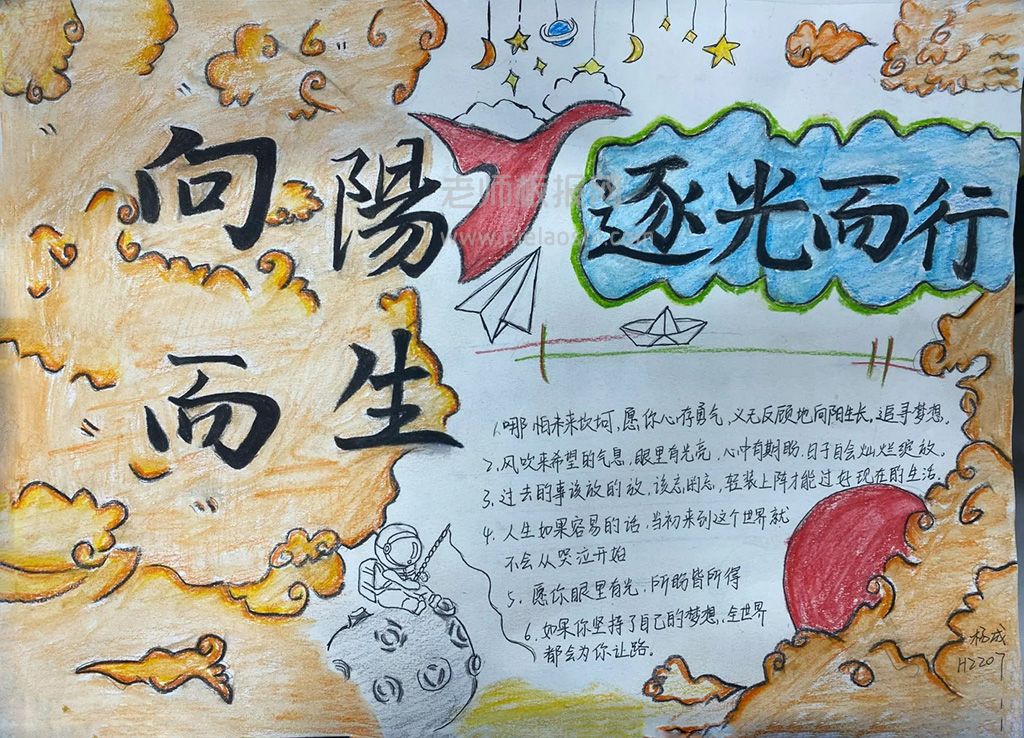 向陽
而生
逐光而行
老师板报网
1.哪怕未来坎坷,愿你心存勇气,义无反顾地向阳生长,追寻梦想。
2.风吹来希望的气息,眼里有光亮,心中有期盼,日子自会灿烂绽放。
3.过去的事该放的放,该忘的忘,轻装上阵才能过好现在的生活。
4.人生如果容易的话,当初来到这个世界就
不会从哭泣开始
5.愿你眼里有光,所盼皆所得
6.如果你坚持了自己的梦想,全世界
都会为你让路。
杨成
H2207